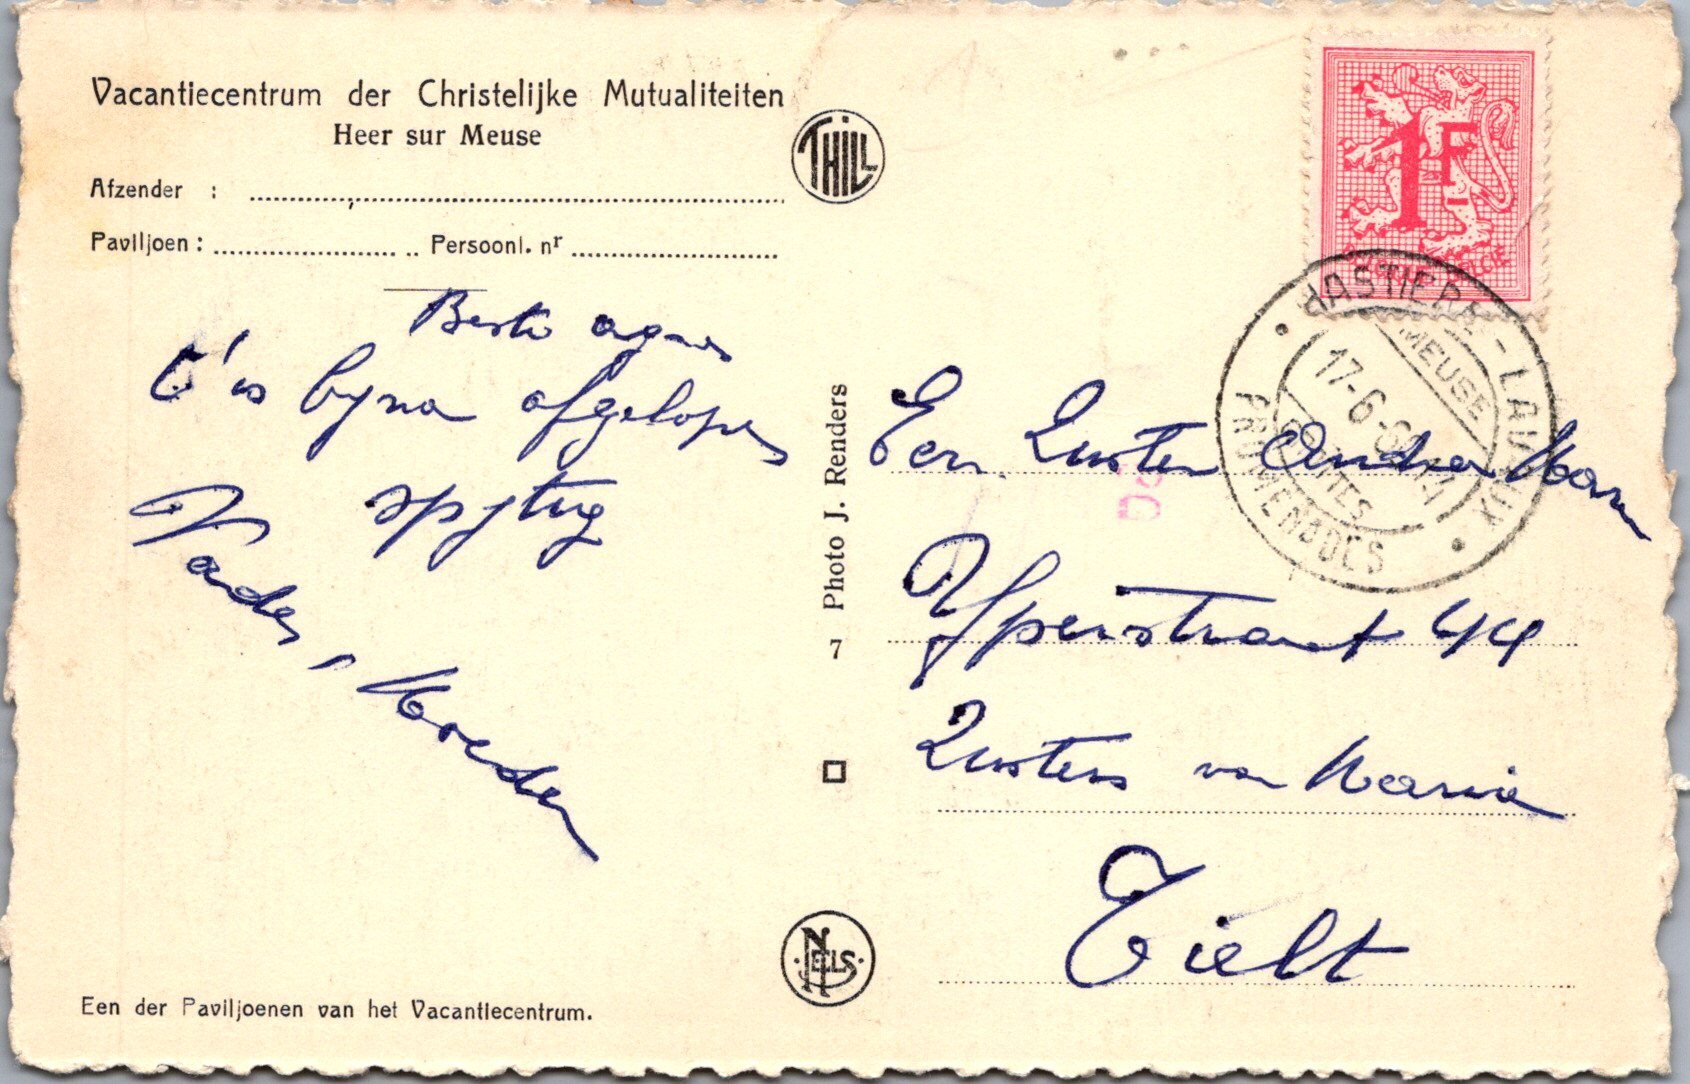 Vacantiecentrum der Christelijke Mutualiteiten
Heer sur Meuse
Afzender :
Paviljoen : Persoonl. nr
Beste agnes
t' is byna afgelopen
spytig
Vader, Moeder
Een der Paviljoenen van het Vacantiecentrum.
THILL
Photo J. Renders
7
NELS
1F
HASTIERE-LAVAUX
MEUSE
17-6-
GROTTES
PROMENADES
Eerw. Zuster Andrea Maria
Yperstraat 44
Zusters van Maria
Tielt